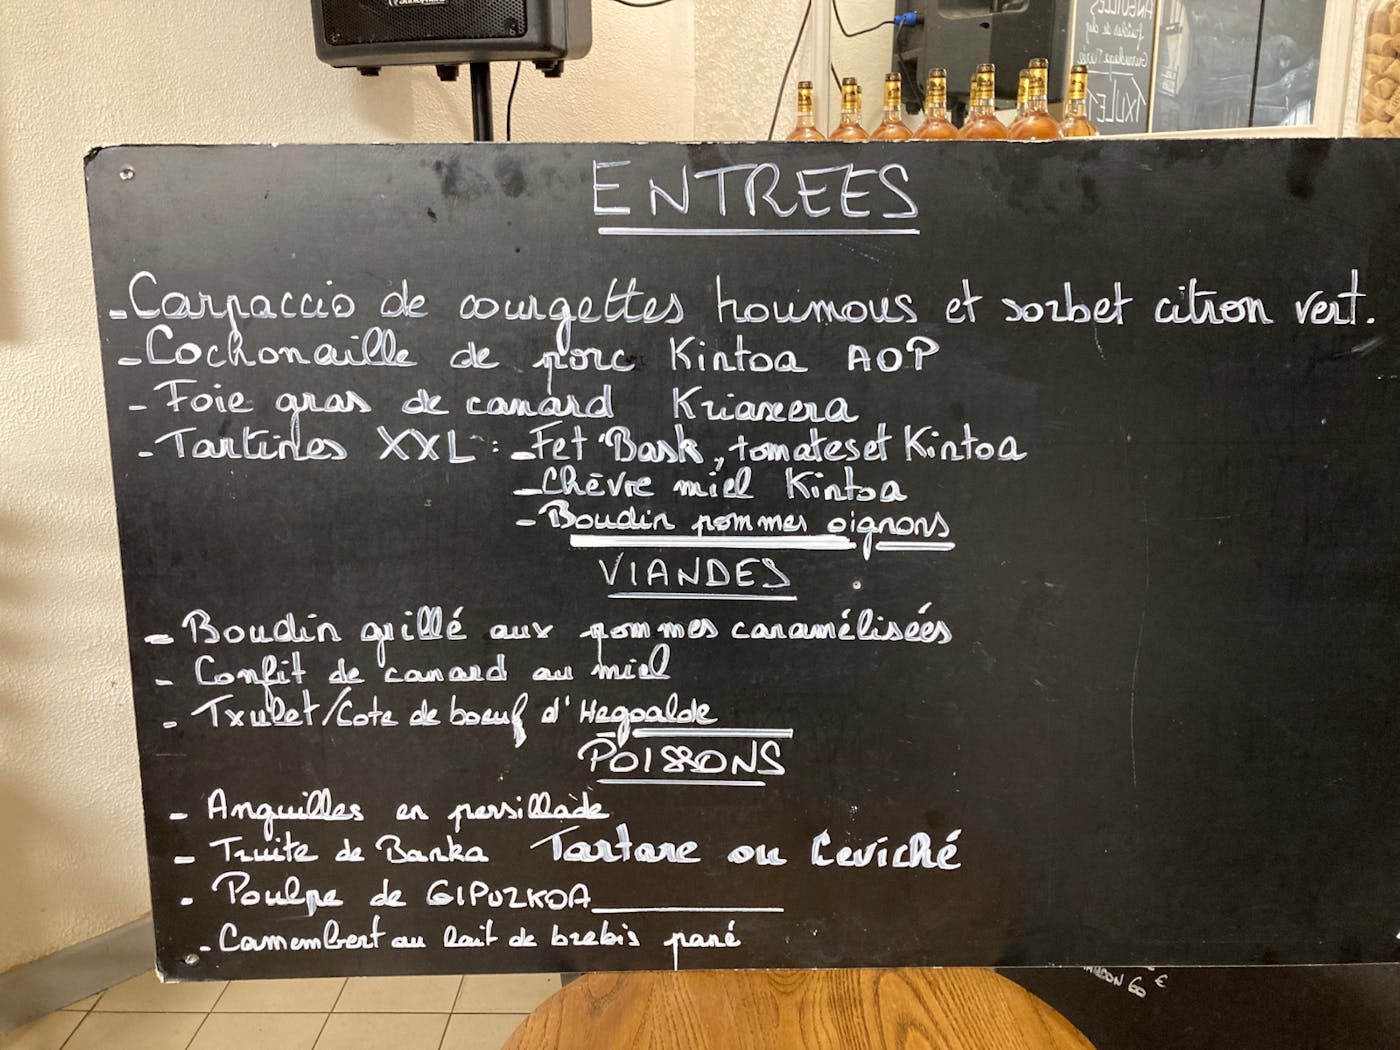 ENTREES
- Carpaccio de courgettes houmous et sorbet citron vert.
- Cochonaille de porc Kintoa AOP
- Foie gras de canard Kriaxera
- Tartines XXL : - Fet Bask, tomates et Kintoa
- Chèvre miel Kintoa
- Boudin pommes oignons
VIANDES
- Boudin grillé aux pommes caramélisées
- Confit de canard au miel
- Txulet/Cote de boeuf d'Hegoalde
POISSONS
- Anguilles en persillade
- Truite de Banka Tartare ou Ceviché
- Poulpe de GIPUZKOA
- Camembert au lait de brebis pané
60 €
ANGUILLES
TXULET